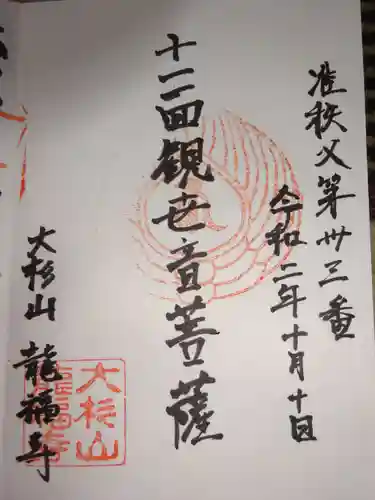 准秩父第卅三番
令和二年十月十日
十一面観世音菩薩
大杉山
龍福寺
大杉山
龍福寺